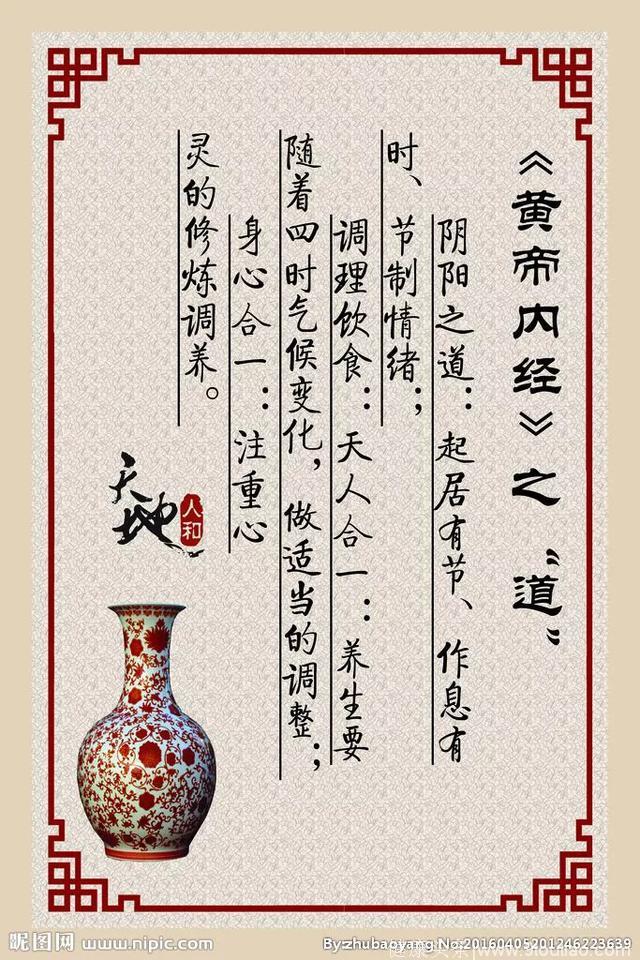 《黄帝内经》之“道”
阴阳之道：起居有节、作息有
时、节制情绪；
调理饮食：天人合一：养生要
随着四时气候变化，做适当的调整；
身心合一：注重心
灵的修炼调养。
天地
人和
昵图网 www.nipic.com
By:zhubaoyang No:20160405201246223639